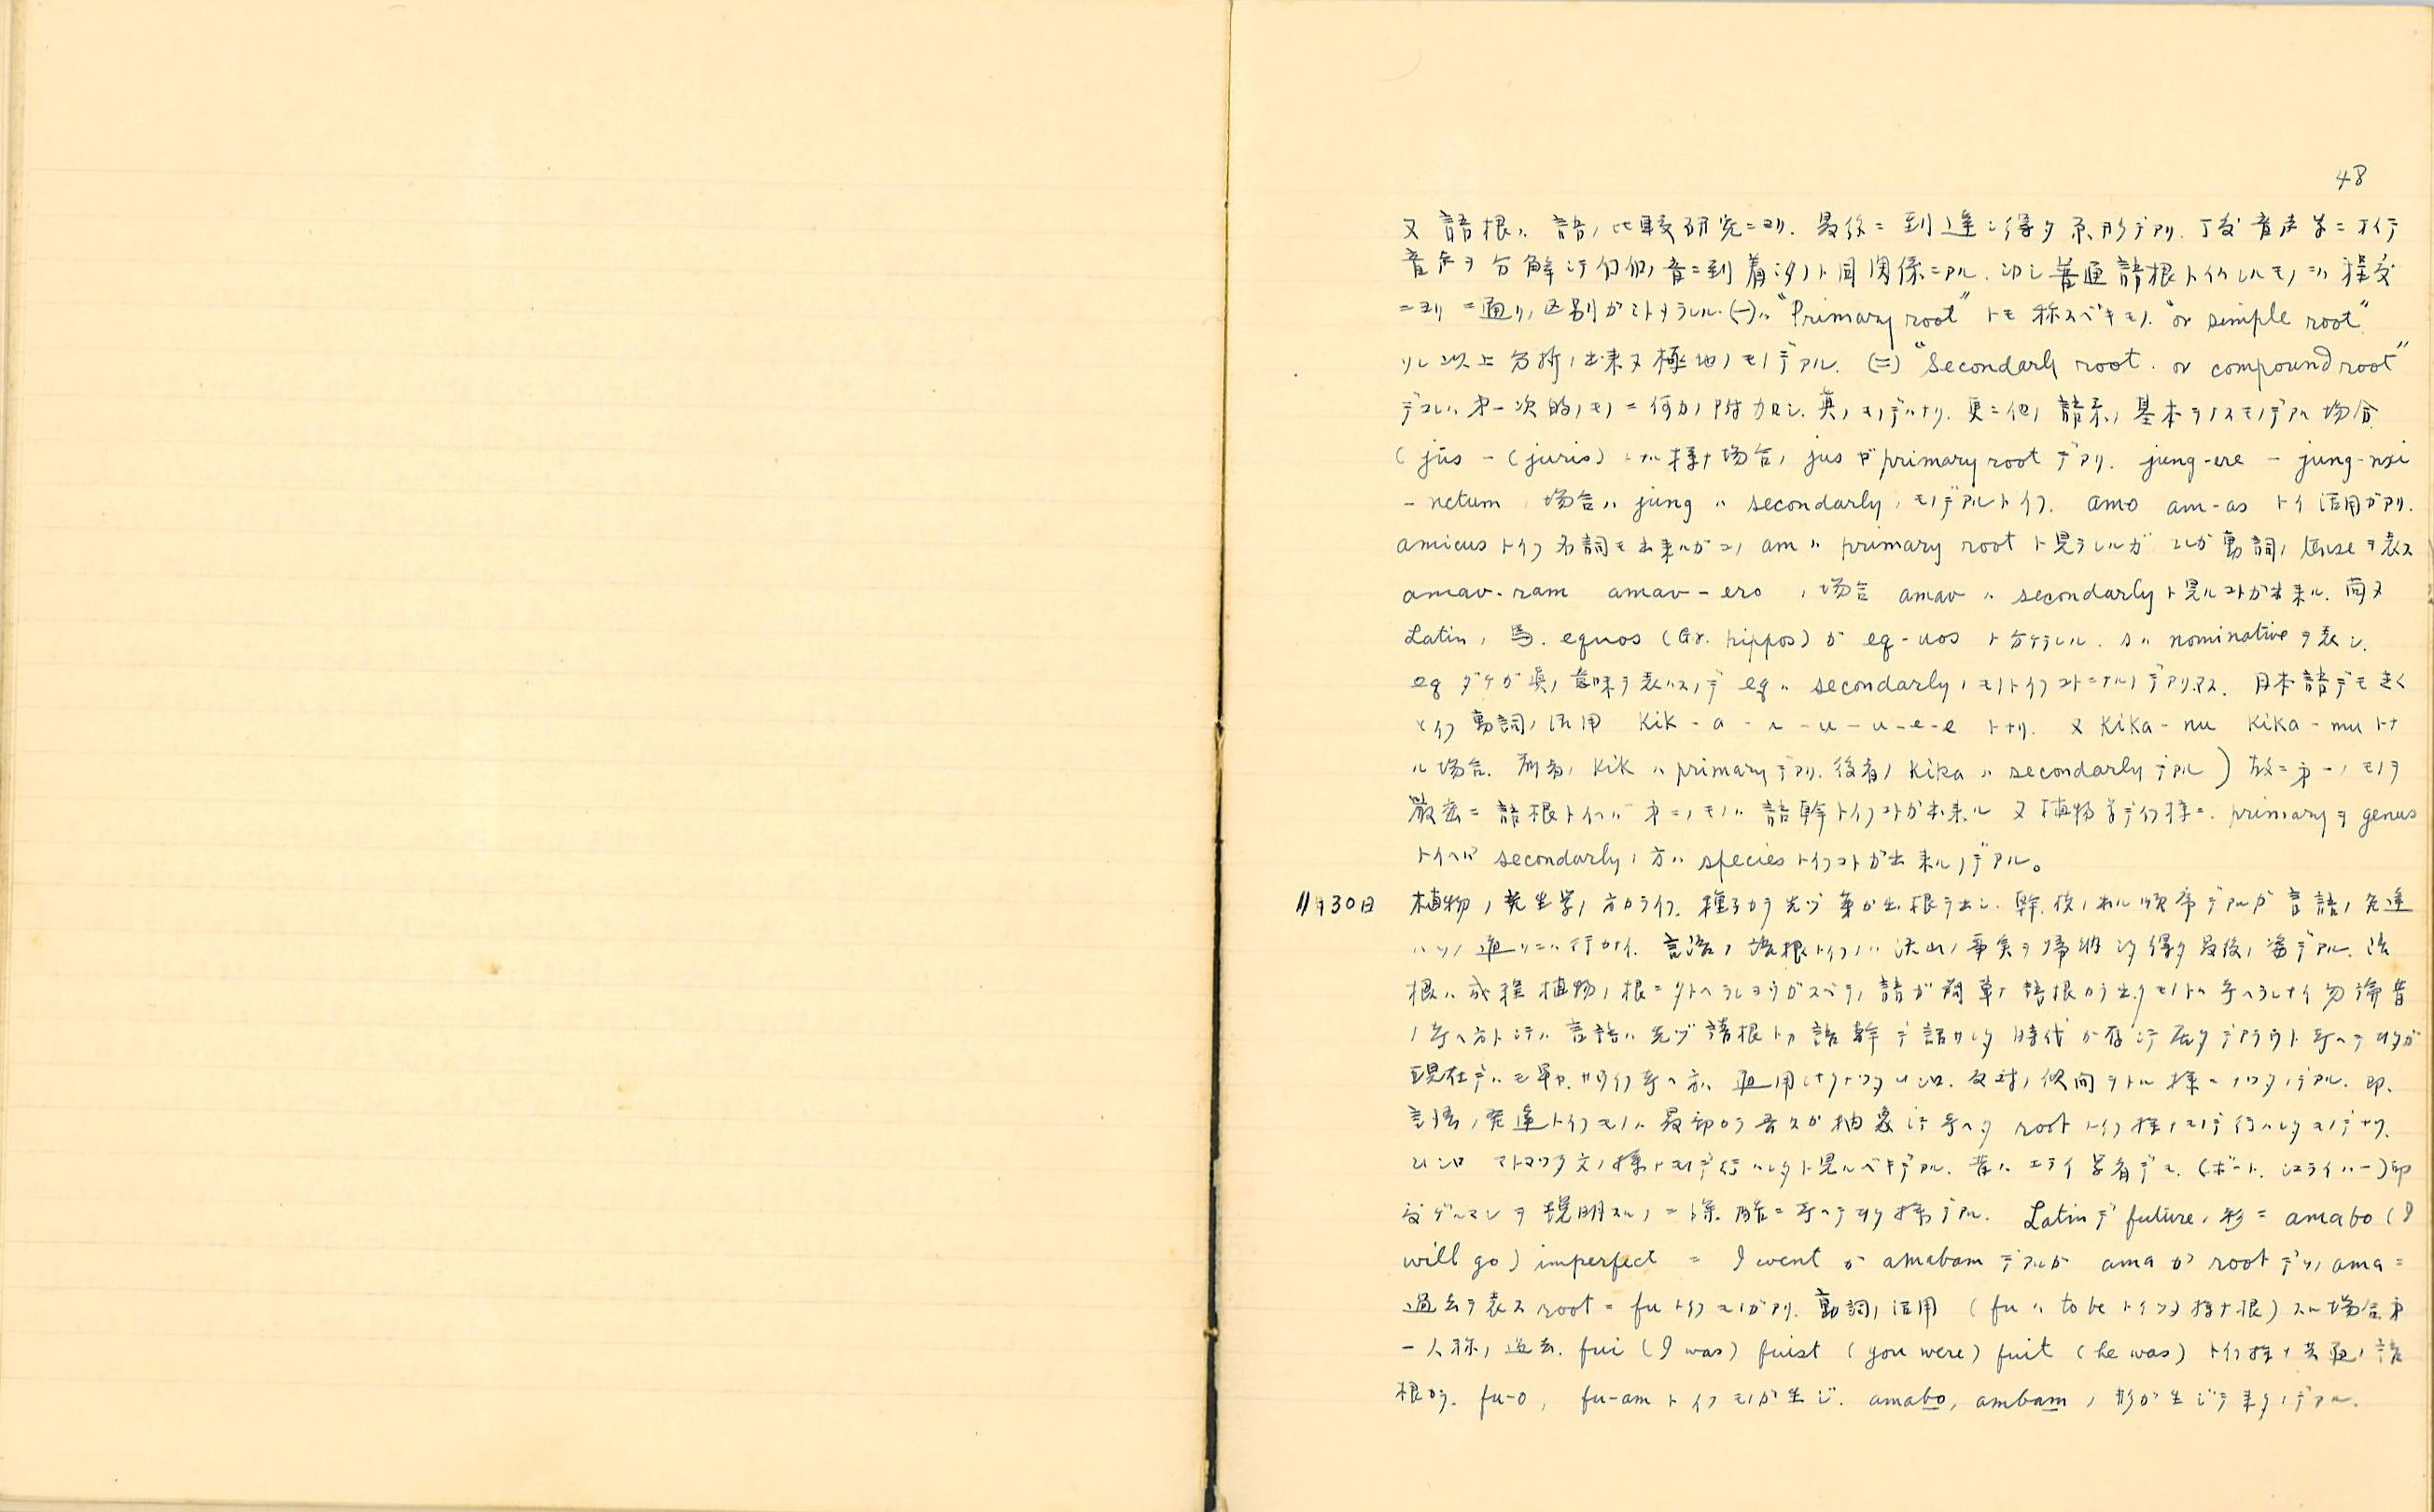 48
又 語根ハ 語ノ比較研究ニヨリ. 最後ニ到達シ得タ原形デアリ. 丁度音声学ニオイテ
音声ヲ分解シテ個個ノ音ニ到着シタノト同関係ニアル. 即シ普通語根トイハレルモノニハ 程度
ニヨリ 二通リノ区別ガミトメラレル. (一)ハ "Primary root" トモ称スベキモノ. "or simple root".
ソレ以上分析ノ出来ヌ極地ノモノデアル. (二) "Secondarly root. or compound root"
デコレハ 第一次的ノモノニ何カノ附加ヲシ. 真ノモノデハナク. 更ニ他ノ語系ノ基本ヲナスモノデアル場合
( jūs - (juris) ノ様ナ場合ノ jus ガ primary root デアリ. jung-ere - jung-nxi
- nctum ノ場合ハ jung ハ secondarly ノモノデアルトイフ. amo am-as トイ活用ガアリ.
amicus トイフ名詞モ出来ルガコノ am ハ primary root ト見ラレルガ コレガ動詞ノ tense ヲ表ス
amav-ram amav-ero ノ場合 amav ハ secondarly ト見ルコトガ出来ル. 尚又
Latin ノ馬. equos (Gr. hippos) ガ eq-uos ト分ケラレル. s ハ nominative ヲ表シ.
eq ダケガ真ノ意味ヲ表ハスノデ eq ハ secondarly ノモノトイフコトニナルノデアリマス. 日本語デモきく
トイフ動詞ノ活用 Kik - a - i - u - u - e - e トナリ. 又 Kika - nu Kika - mu トナ
ル場合. 前者ノ Kik ハ primary デアリ. 後者ノ Kika ハ secondarly デアル ) 故ニ第一ノモノヲ
厳密ニ語根トイヘバ 第二ノモノハ 語幹トイフコトガ出来ル 又植物学デイフ様ニ. primary ヲ genus
トイヘバ secondarly ノ方ハ species トイフコトガ出来ルノデアル。
11月30日 植物ノ発生学ノ方カライフ. 種子カラ先ヅ芽ガ出. 根ヲ出シ. 幹. 枝ノ出ル順序デアルガ 言語ノ発達
ハソノ通リニハ行カナイ. 言語ノ語根トイフノハ 沢山ノ事実ヲ帰納シタ得タ最後ノ姿デアル. 語
根ハ成程植物ノ根ニタトヘラレヨウガスベテノ語ガ簡単ナ語根カラ出タモノトハ考ヘラレナイ勿論昔
ノ考ヘ方トシテハ 言語ハ先ヅ語根トカ語幹デ語ラレタ時代ガ存シテ居タデアラウト考ヘテヰタガ
現在デハモ早. カウイフ考ヘ方ハ 通用シナクナツタ ムシロ. 反対ノ傾向ヲトル様ニナツタノデアル. 即.
言語ノ発達トイフモノハ 最初カラ吾々ガ抽象シテ考ヘタ root トイフ様ナモノデ行ハレタモノデナク.
ムシロ マトマツタ文ノ様ナモノデ行ハレタト見ルベキデアル. 昔ハ エライ学者デモ. (ボート. シュライハー) 印
欧ゲルマンヲ説明スルノニ 考ヘテヰタ様デアル. Latin デ future ノ形ニ amabo (I
will go) imperfect = I went ガ amabam デアルガ ama ガ root デソノ ama ニ
過去ヲ表ス root = fu トイフモノガアリ. 動詞ノ活用 ( fu ハ to be トイツタ様ナ根) スル場合第
一人称ノ過去. fui (I was) fuist (you were) fuit (he was) トイフ様ナ共通ノ語
根カラ. fu-o, fu-am トイフモノガ生ジ. amabo, ambam ノ形ガ生ジテ来タノデアル.